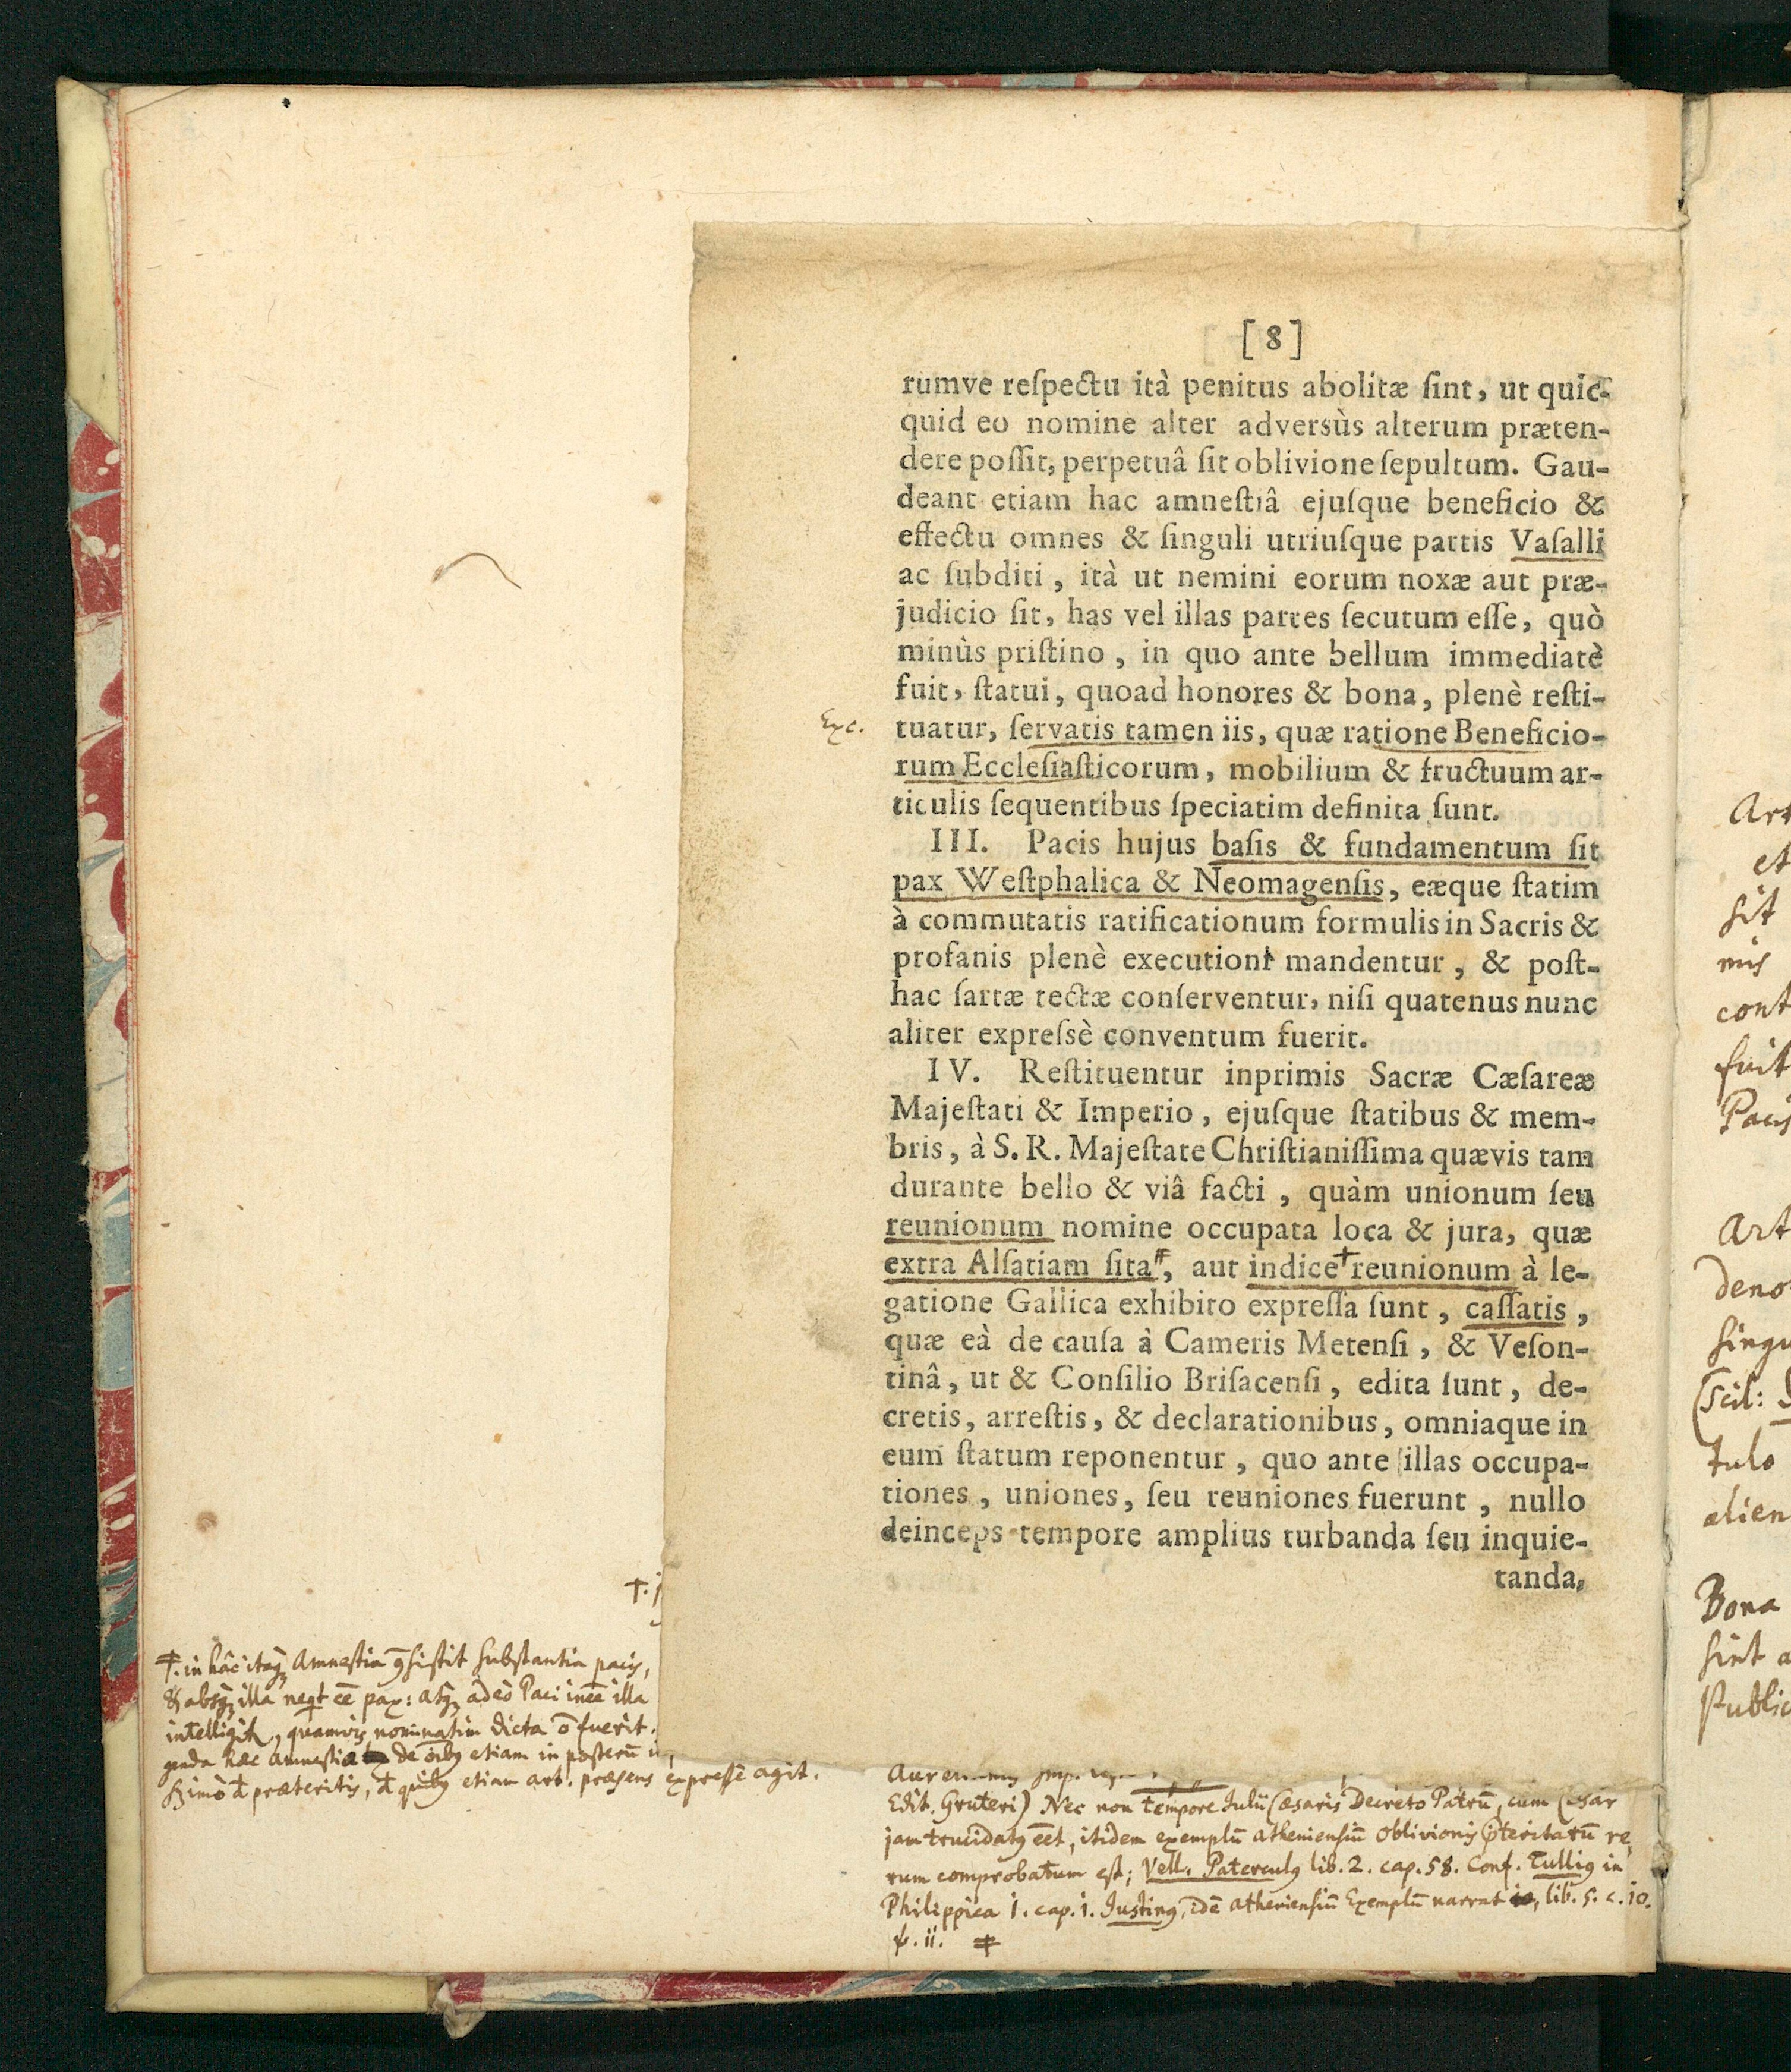 [8]
rumve reſpectu ità penitus abolitæ ſint, ut quic-
quid eo nomine alter adversùs alterum præten-
dere poſſit, perpetuâ ſit oblivione ſepultum. Gau-
deant etiam hac amneſtiâ ejuſque beneficio &
effectu omnes & ſinguli utriuſque partis Vaſalli
ac ſubditi, ità ut nemini eorum noxæ aut præ-
judicio ſit, has vel illas partes ſecutum eſſe, quò
minùs priſtino, in quo ante bellum immediatè
fuit, ſtatui, quoad honores & bona, plenè reſti-
Exc.
tuatur, ſervatis tamen iis, quæ ratione Beneficio-
rum Eccleſiaſticorum, mobilium & fructuum ar-
ticulis ſequentibus ſpeciatim definita ſunt.
III. Pacis hujus baſis & fundamentum ſit
pax Weſtphalica & Neomagenſis, eæque ſtatim
à commutatis ratificationum formulis in Sacris &
profanis plenè executioni mandentur, & poſt-
hac ſartæ tectæ conſerventur, niſi quatenus nunc
aliter expreſsè conventum fuerit.
IV. Reſtituentur inprimis Sacræ Cæſareæ
Majeſtati & Imperio, ejuſque ſtatibus & mem-
bris, à S. R. Majeſtate Chriſtianiſſima quævis tam
durante bello & viâ facti, quàm unionum ſeu
reunionum nomine occupata loca & jura, quæ
extra Alſatiam ſita ǂ, aut indice † reunionum à le-
gatione Gallica exhibito expreſſa ſunt, caſſatis,
quæ eà de cauſa à Cameris Metenſi, & Veſon-
tinâ, ut & Conſilio Briſacenſi, edita ſunt, de-
cretis, arreſtis, & declarationibus, omniaque in
eum ſtatum reponentur, quo ante illas occupa-
tiones, uniones, ſeu reuniones fuerunt, nullo
deinceps tempore amplius turbanda ſeu inquie-
tanda,
†.
ǂ. in hâc itaqꝫ Amnestia ꝯsistit substantia pacis,
& absqꝫ illa neqt eē pax: atqꝫ adeò Paci ineē illa
intelligit, quamvis nominatim dicta ō fuerit.
hæc amnestia de oibꝫ etiam in posterū
præteritis, quibꝫ etiam art. præsens expressè agit.
Edit. Gruteri) Nec non tempore Julii Cæsaris Decreto Patrū, cum Cæsar
jam trucidatꝰ eēt, itidem exemplū atheniensiū oblivionis pteritarū re
rum comprobatum est; Vell. Paterculꝰ lib. 2. cap. 58. Conf. Tulliꝰ in
Philippica 1. cap. 1. Justinꝰ, idē atheniensiū Exemplū narrat, lib. 5. c. 10.
. 11. ǂ
Art
et
sit
mis
cont
fuit
Pacis
Art
deno
singu
(scil:
tulo
alien
Bona
sint a
Public